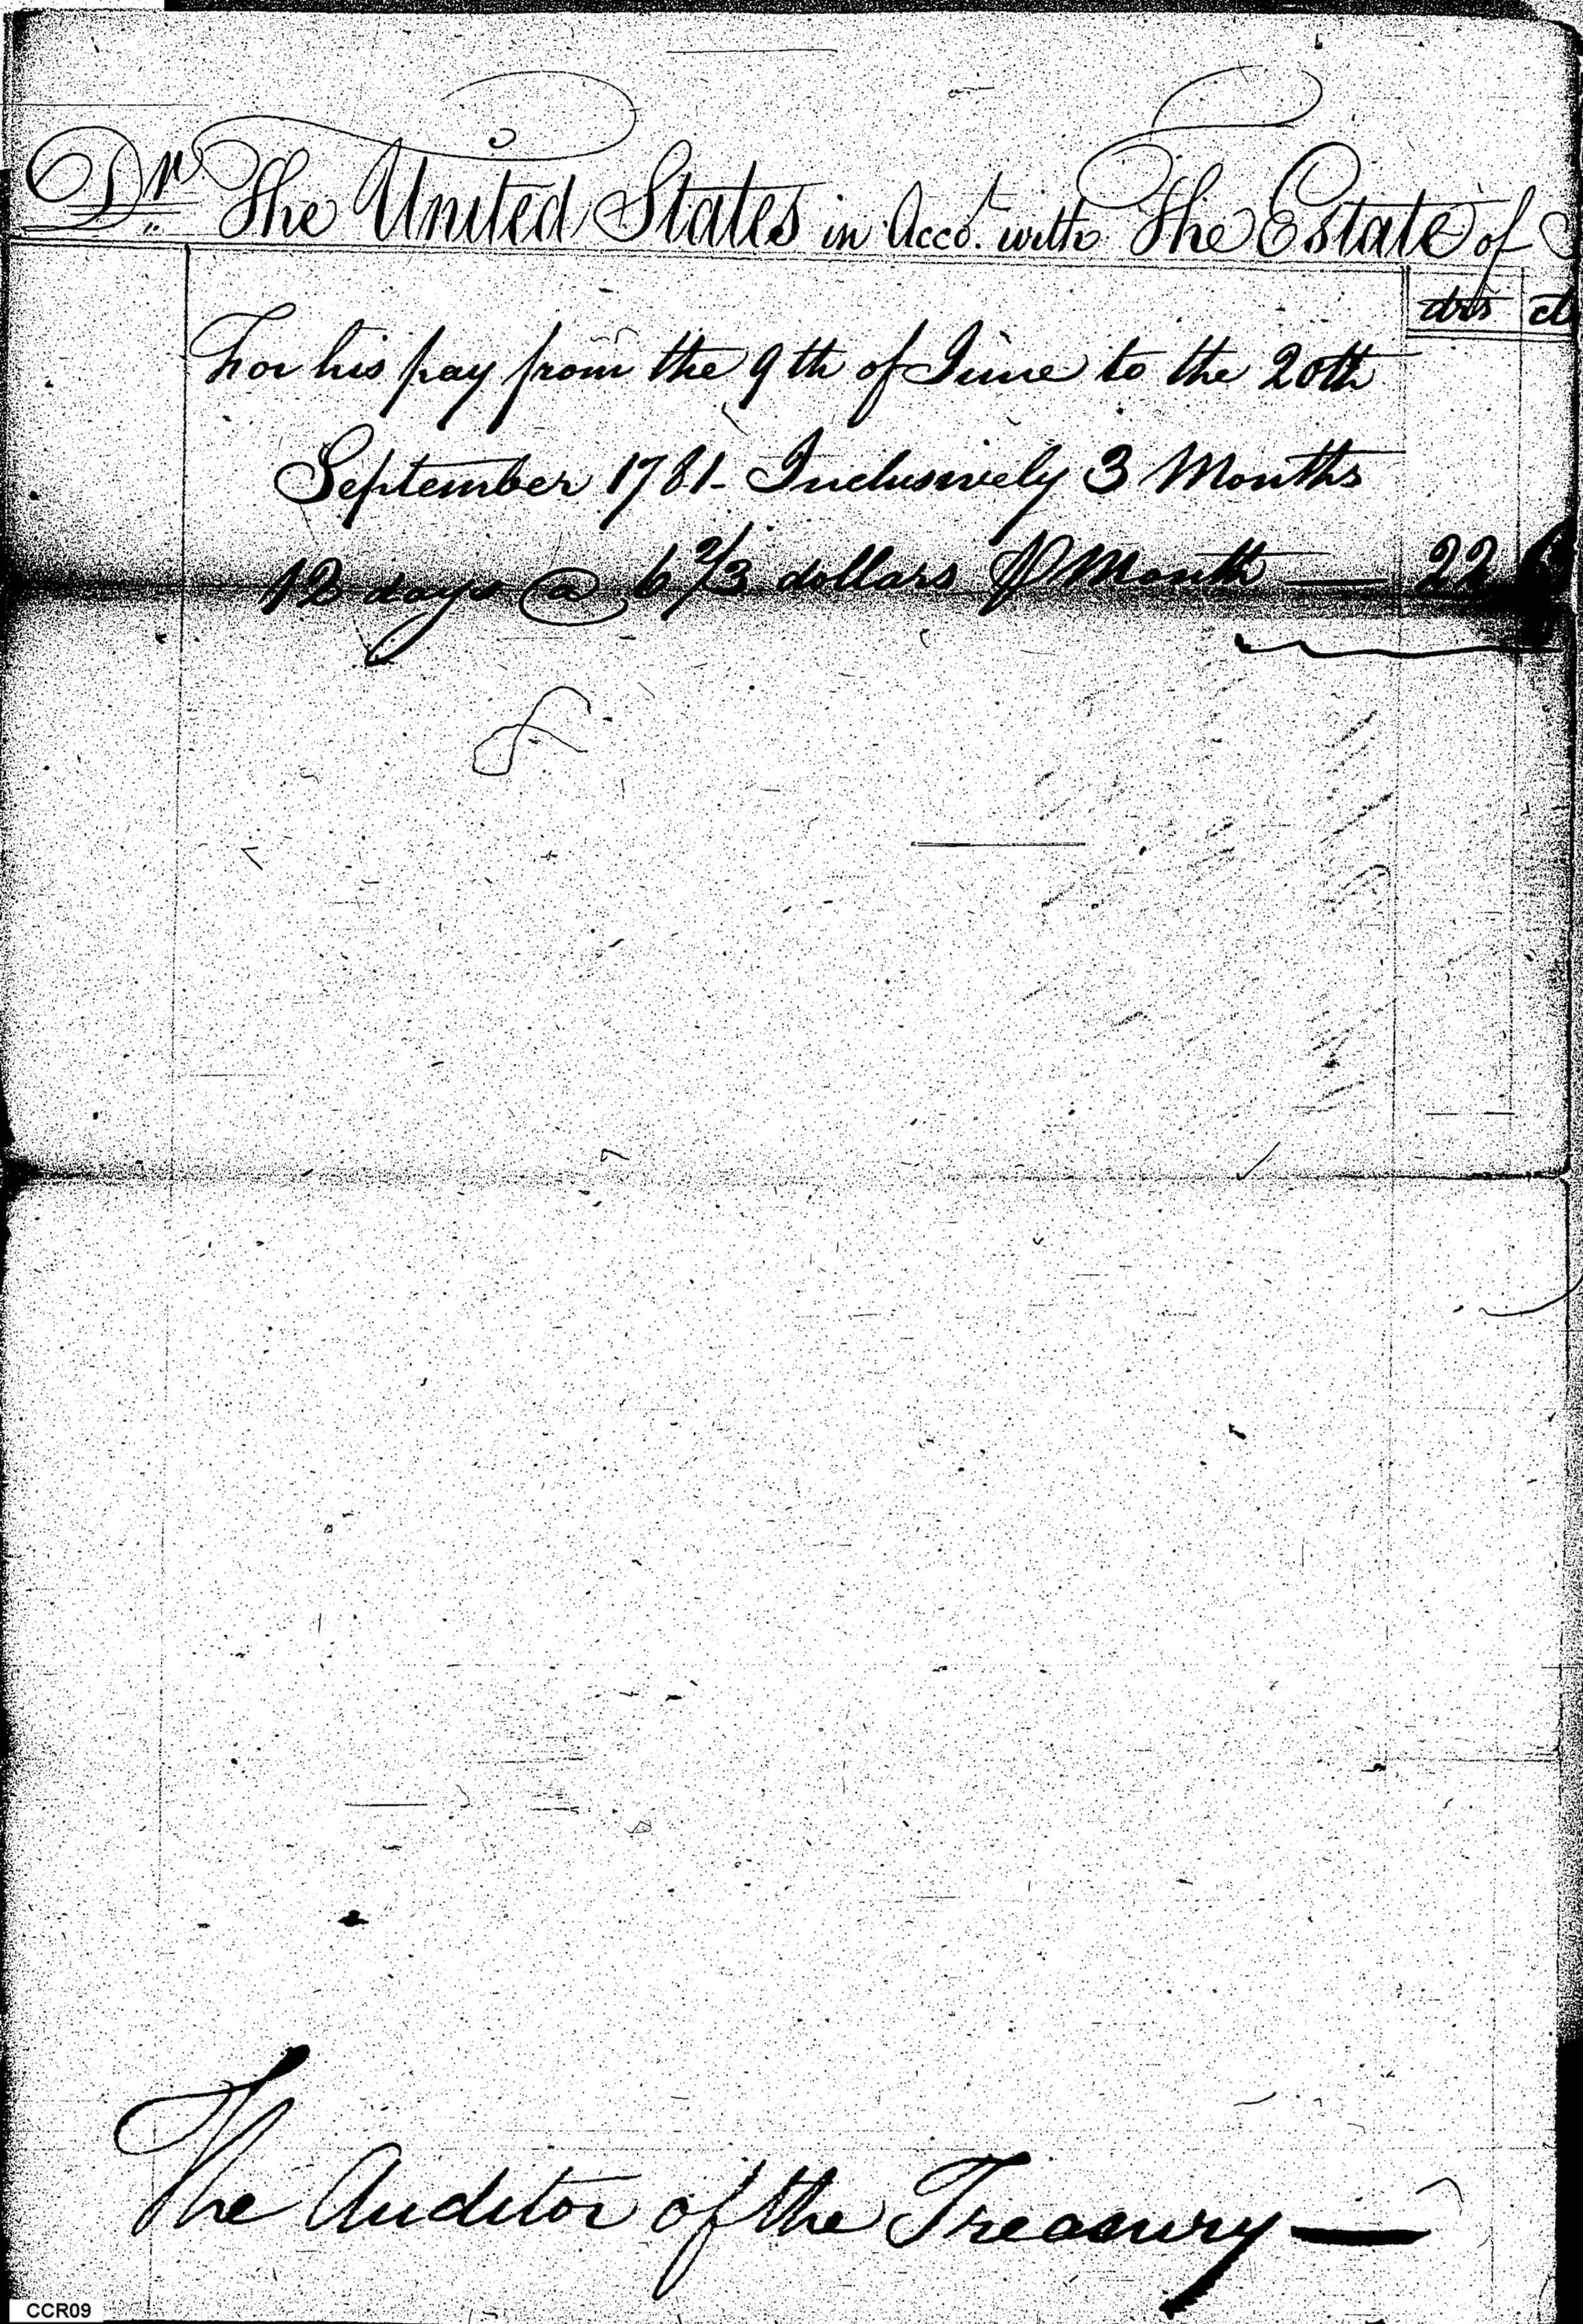 Dr. The United States in Acco.t with The Estate of
drs
For his pay from the 9th of June to the 20th
September 1781 - Inclusively 3 Months
12 days @ 6 2/3 dollars ⅌ Month — 22
The Auditor of the Treasury —
CCR09